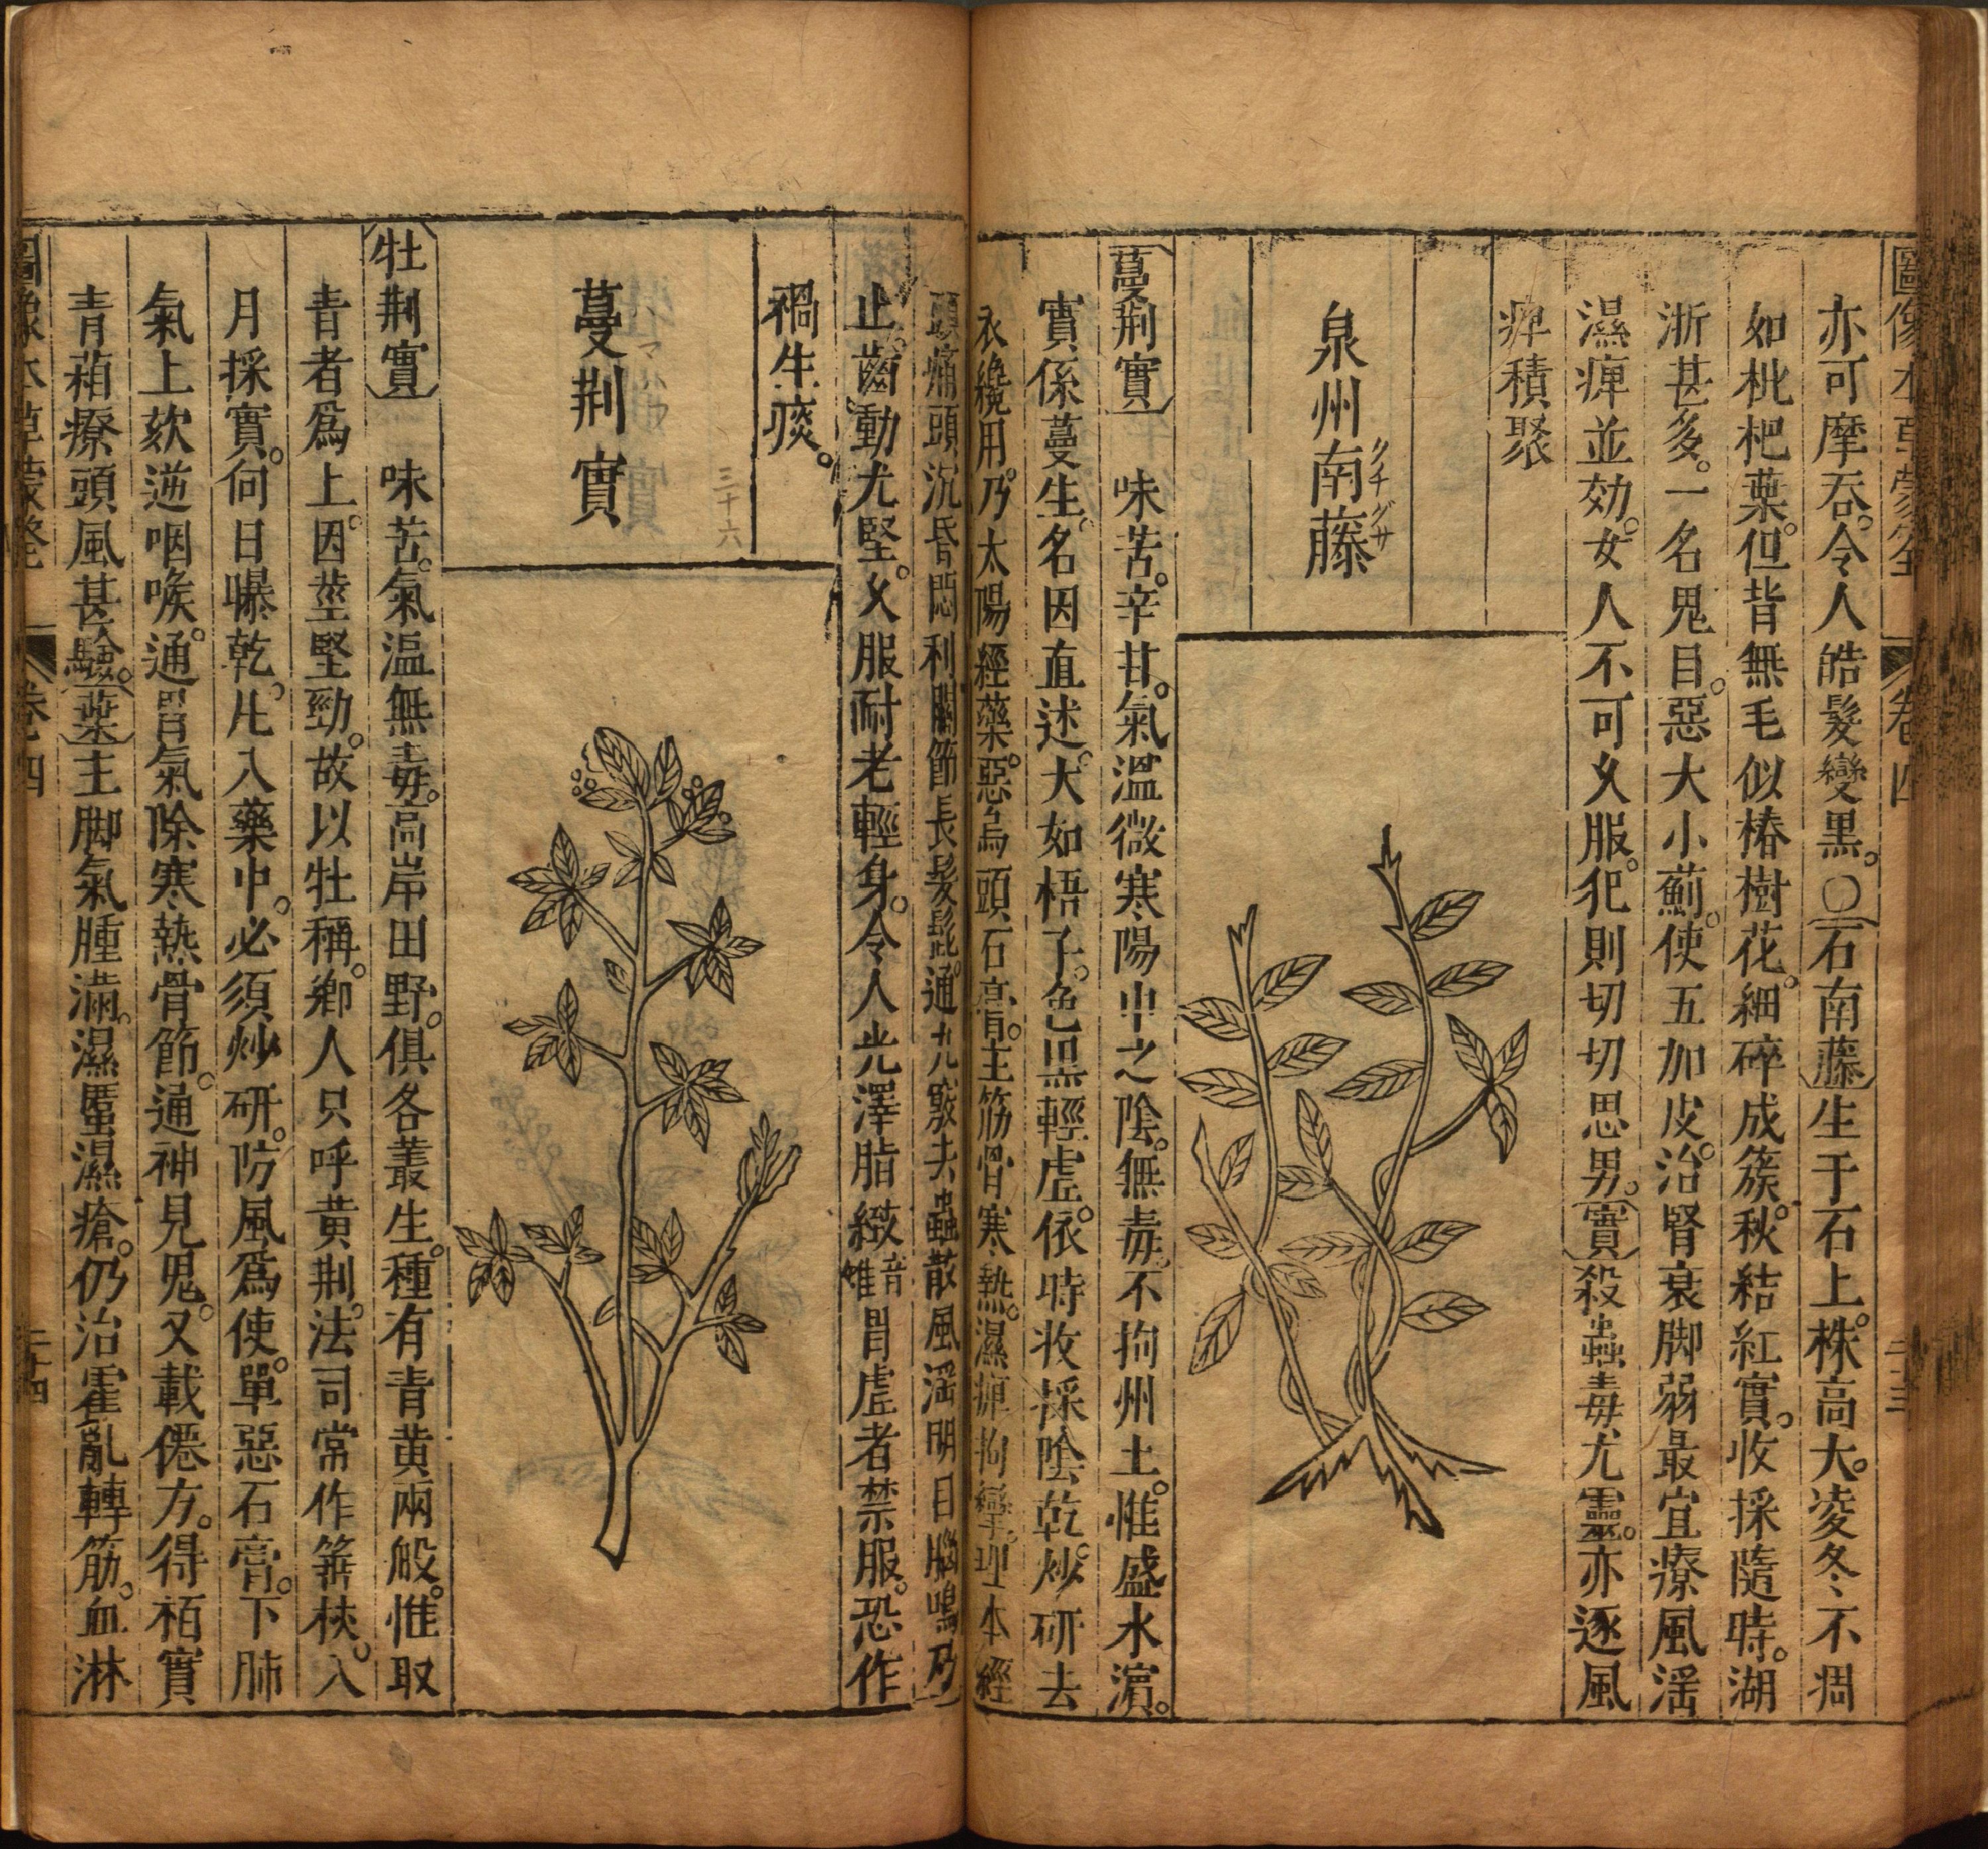 圖像本草蒙筌 卷四 二十三
亦可摩吞。令人皓髮變黑。○石南藤生于石上。株高大。凌冬不凋
如枇杷葉。但背無毛似椿樹花。細碎成簇。秋結紅實。收採隨時。湖
浙甚多。一名鬼目。惡大小薊。使五加皮。治腎衰脚弱最宜療風淫
濕痺並効。女人不可久服。犯則切切思男。實殺蟲毒尤靈。亦逐風
痺積聚
泉州南藤
クチグサ
蔓荆實 味苦。辛甘。氣溫微寒陽中之陰。無毒。不拘州土。惟盛水濵。
實係蔓生。名因直述。大如梧子。色黑輕虛。依時收採陰乾。炒研去
衣纔用。乃太陽經藥。惡烏頭石膏。主筋骨寒熱。濕痺拘攣。理本經
頭痛頭沉昏悶利關節長髮髭。通九竅去蟲散風淫明目腦鳴乃
止。齒動尤堅。久服耐老輕身。令人光澤脂緻惟音胃虛者禁服。恐作
禍生痰。
三十六
蔓荆實
牡荆實 味苦。氣溫無毒。高岸田野。俱各叢生。種有青黄兩般。惟取
青者爲上。因莖堅勁。故以牡稱。鄉人只呼黄荆。法司常作箠杖。入
月採實。向日曝乾。凡入藥中。必須炒研。防風爲使。單惡石膏。下肺
氣上欬逆咽喉。通胃氣除寒熱骨節。通神見鬼。又載僊方。得栢實
青葙療頭風甚驗。葉主脚氣腫滿。濕䘌濕瘡。仍治霍亂轉筋。血淋
圖像本草蒙筌 卷四 二十四